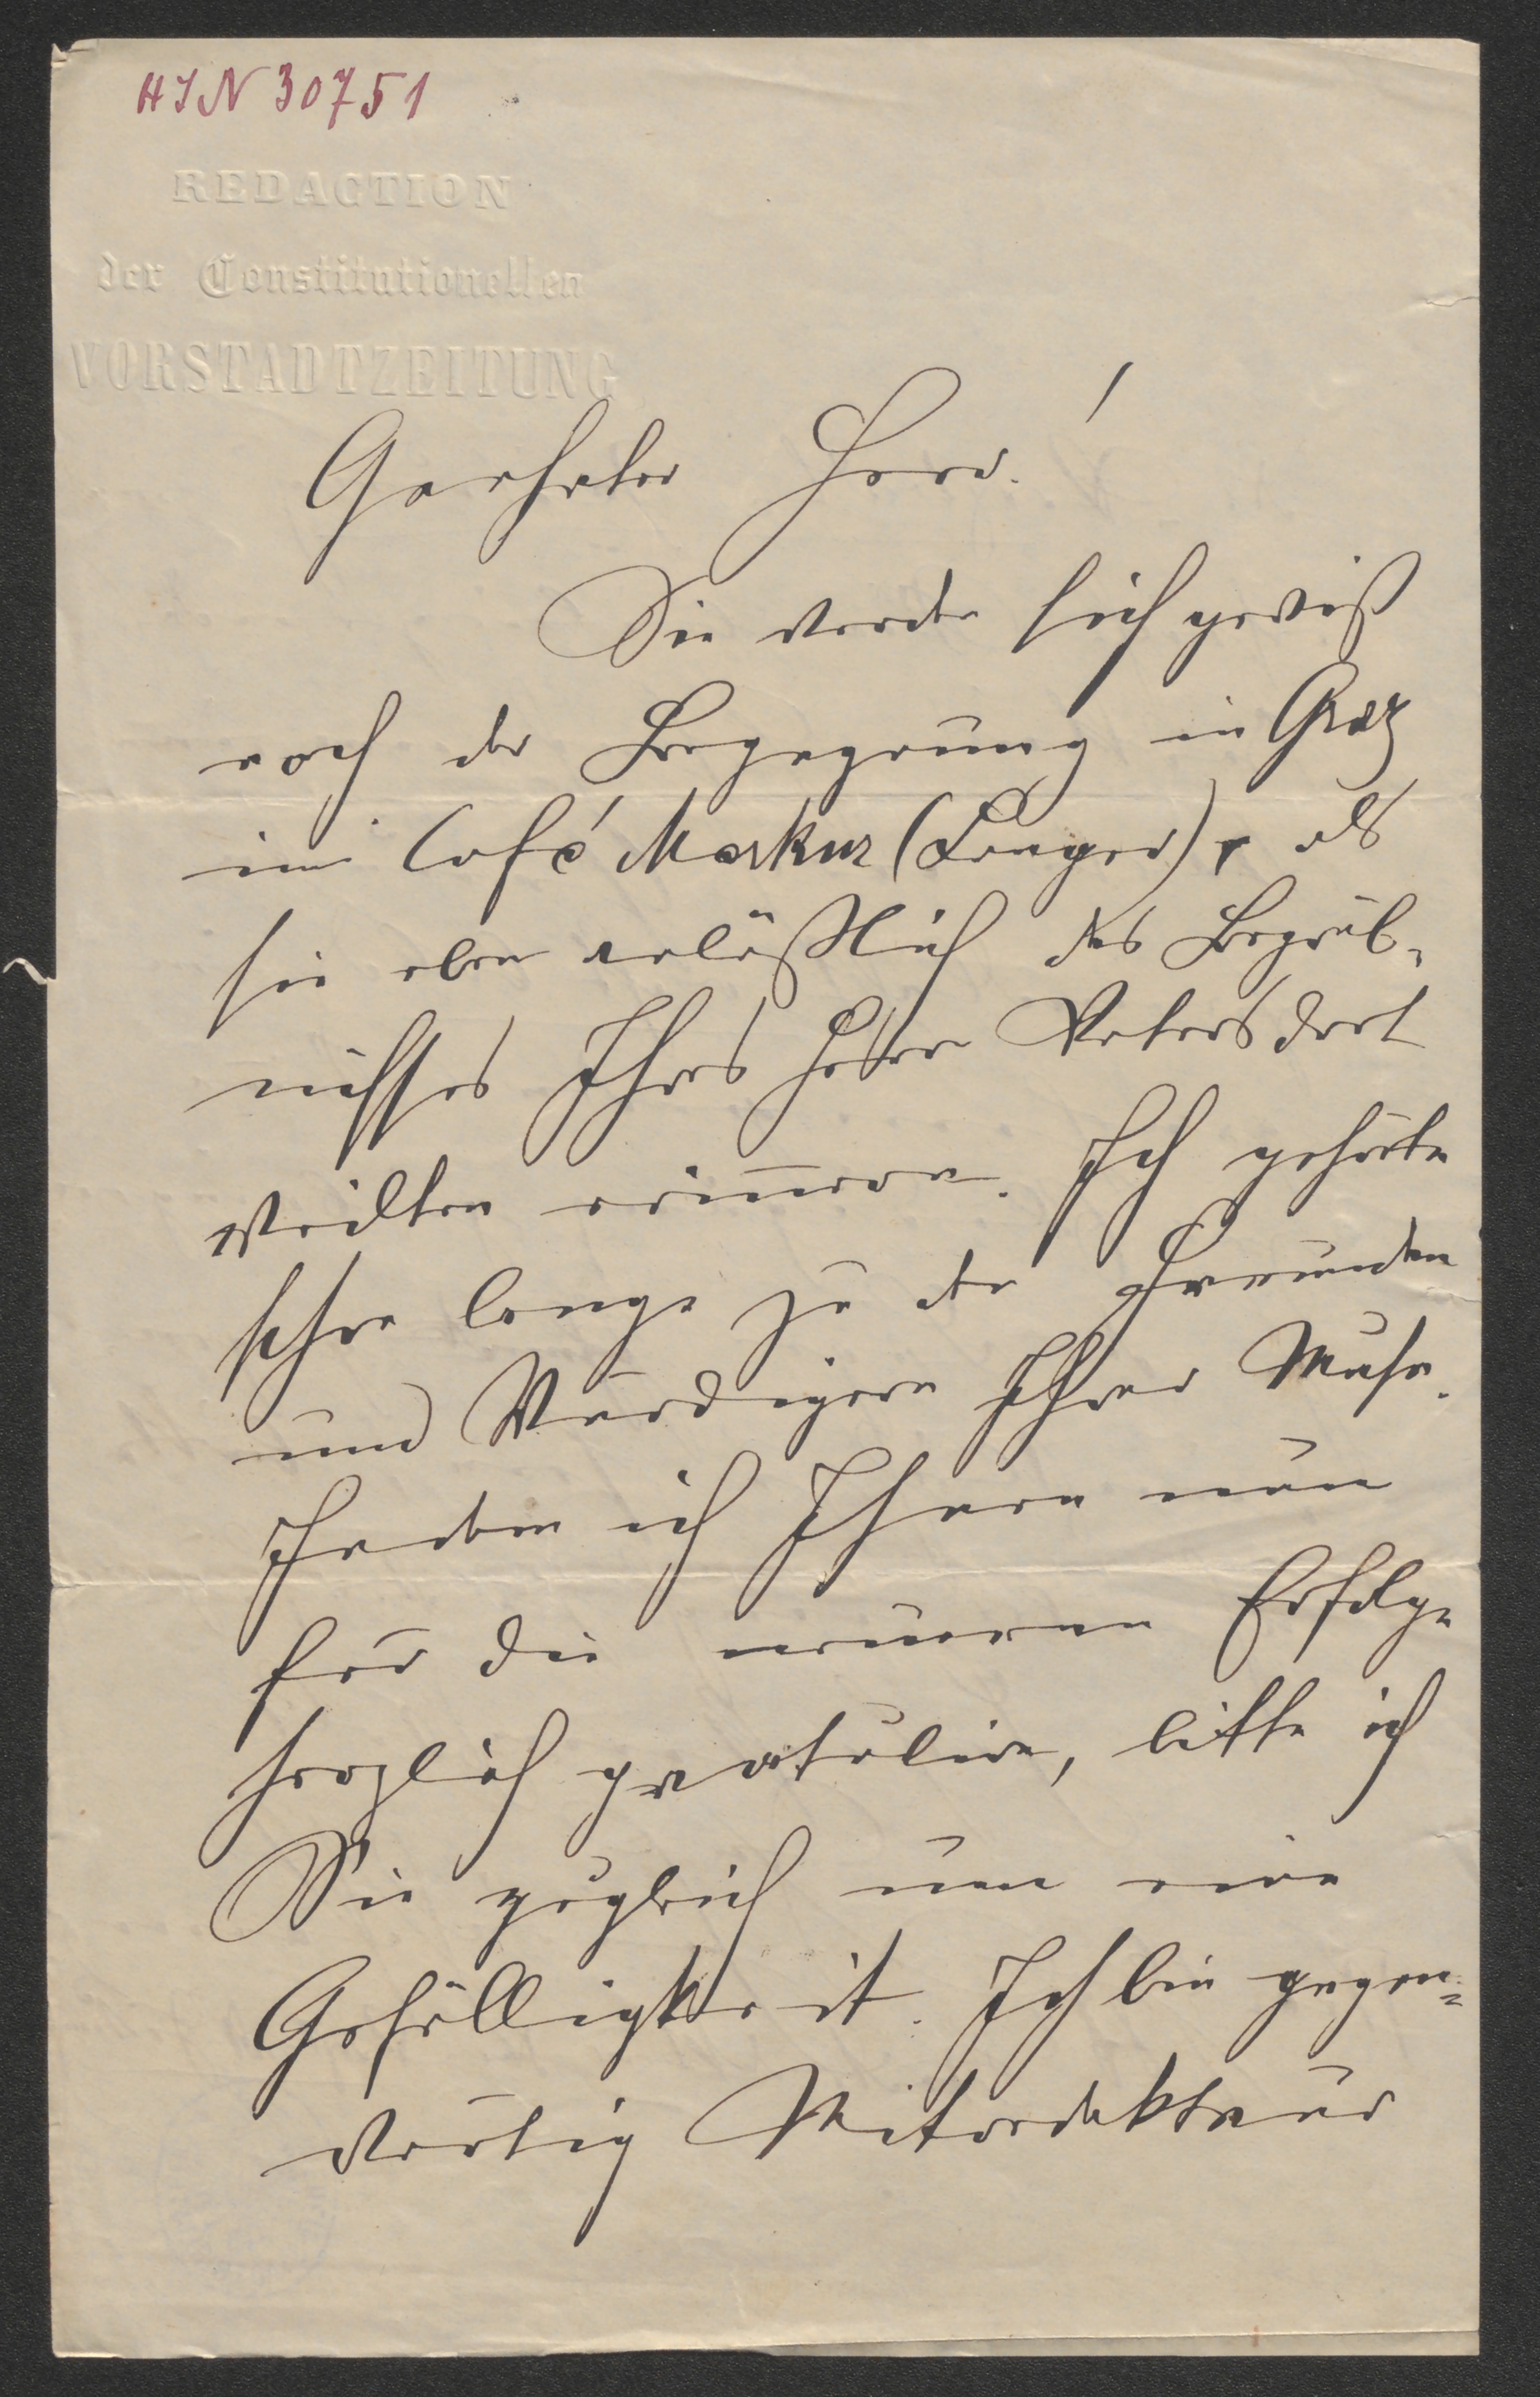 HIN 30751
REDACTION
der Constitutionellen
VORSTADTZEITUNG
Geehrter Herr!
Sie werden sich gewiß
noch der Begegnung in Graz
im Café Merkur, als
sie eben anläßlich des Begräb-
nisses Ihres Herrn Vaters dort
weilten erinnern. Ich gehörte
schon lange zu den Freunden
und Würdigern Ihrer Muse.
Indem ich Ihnen nun
für die neueren Erfolge
herzlich gratulire, bitte ich
Sie zugleich um eine
Gefälligkeit. Ich bin gegen=
wärtig Mitredakteur